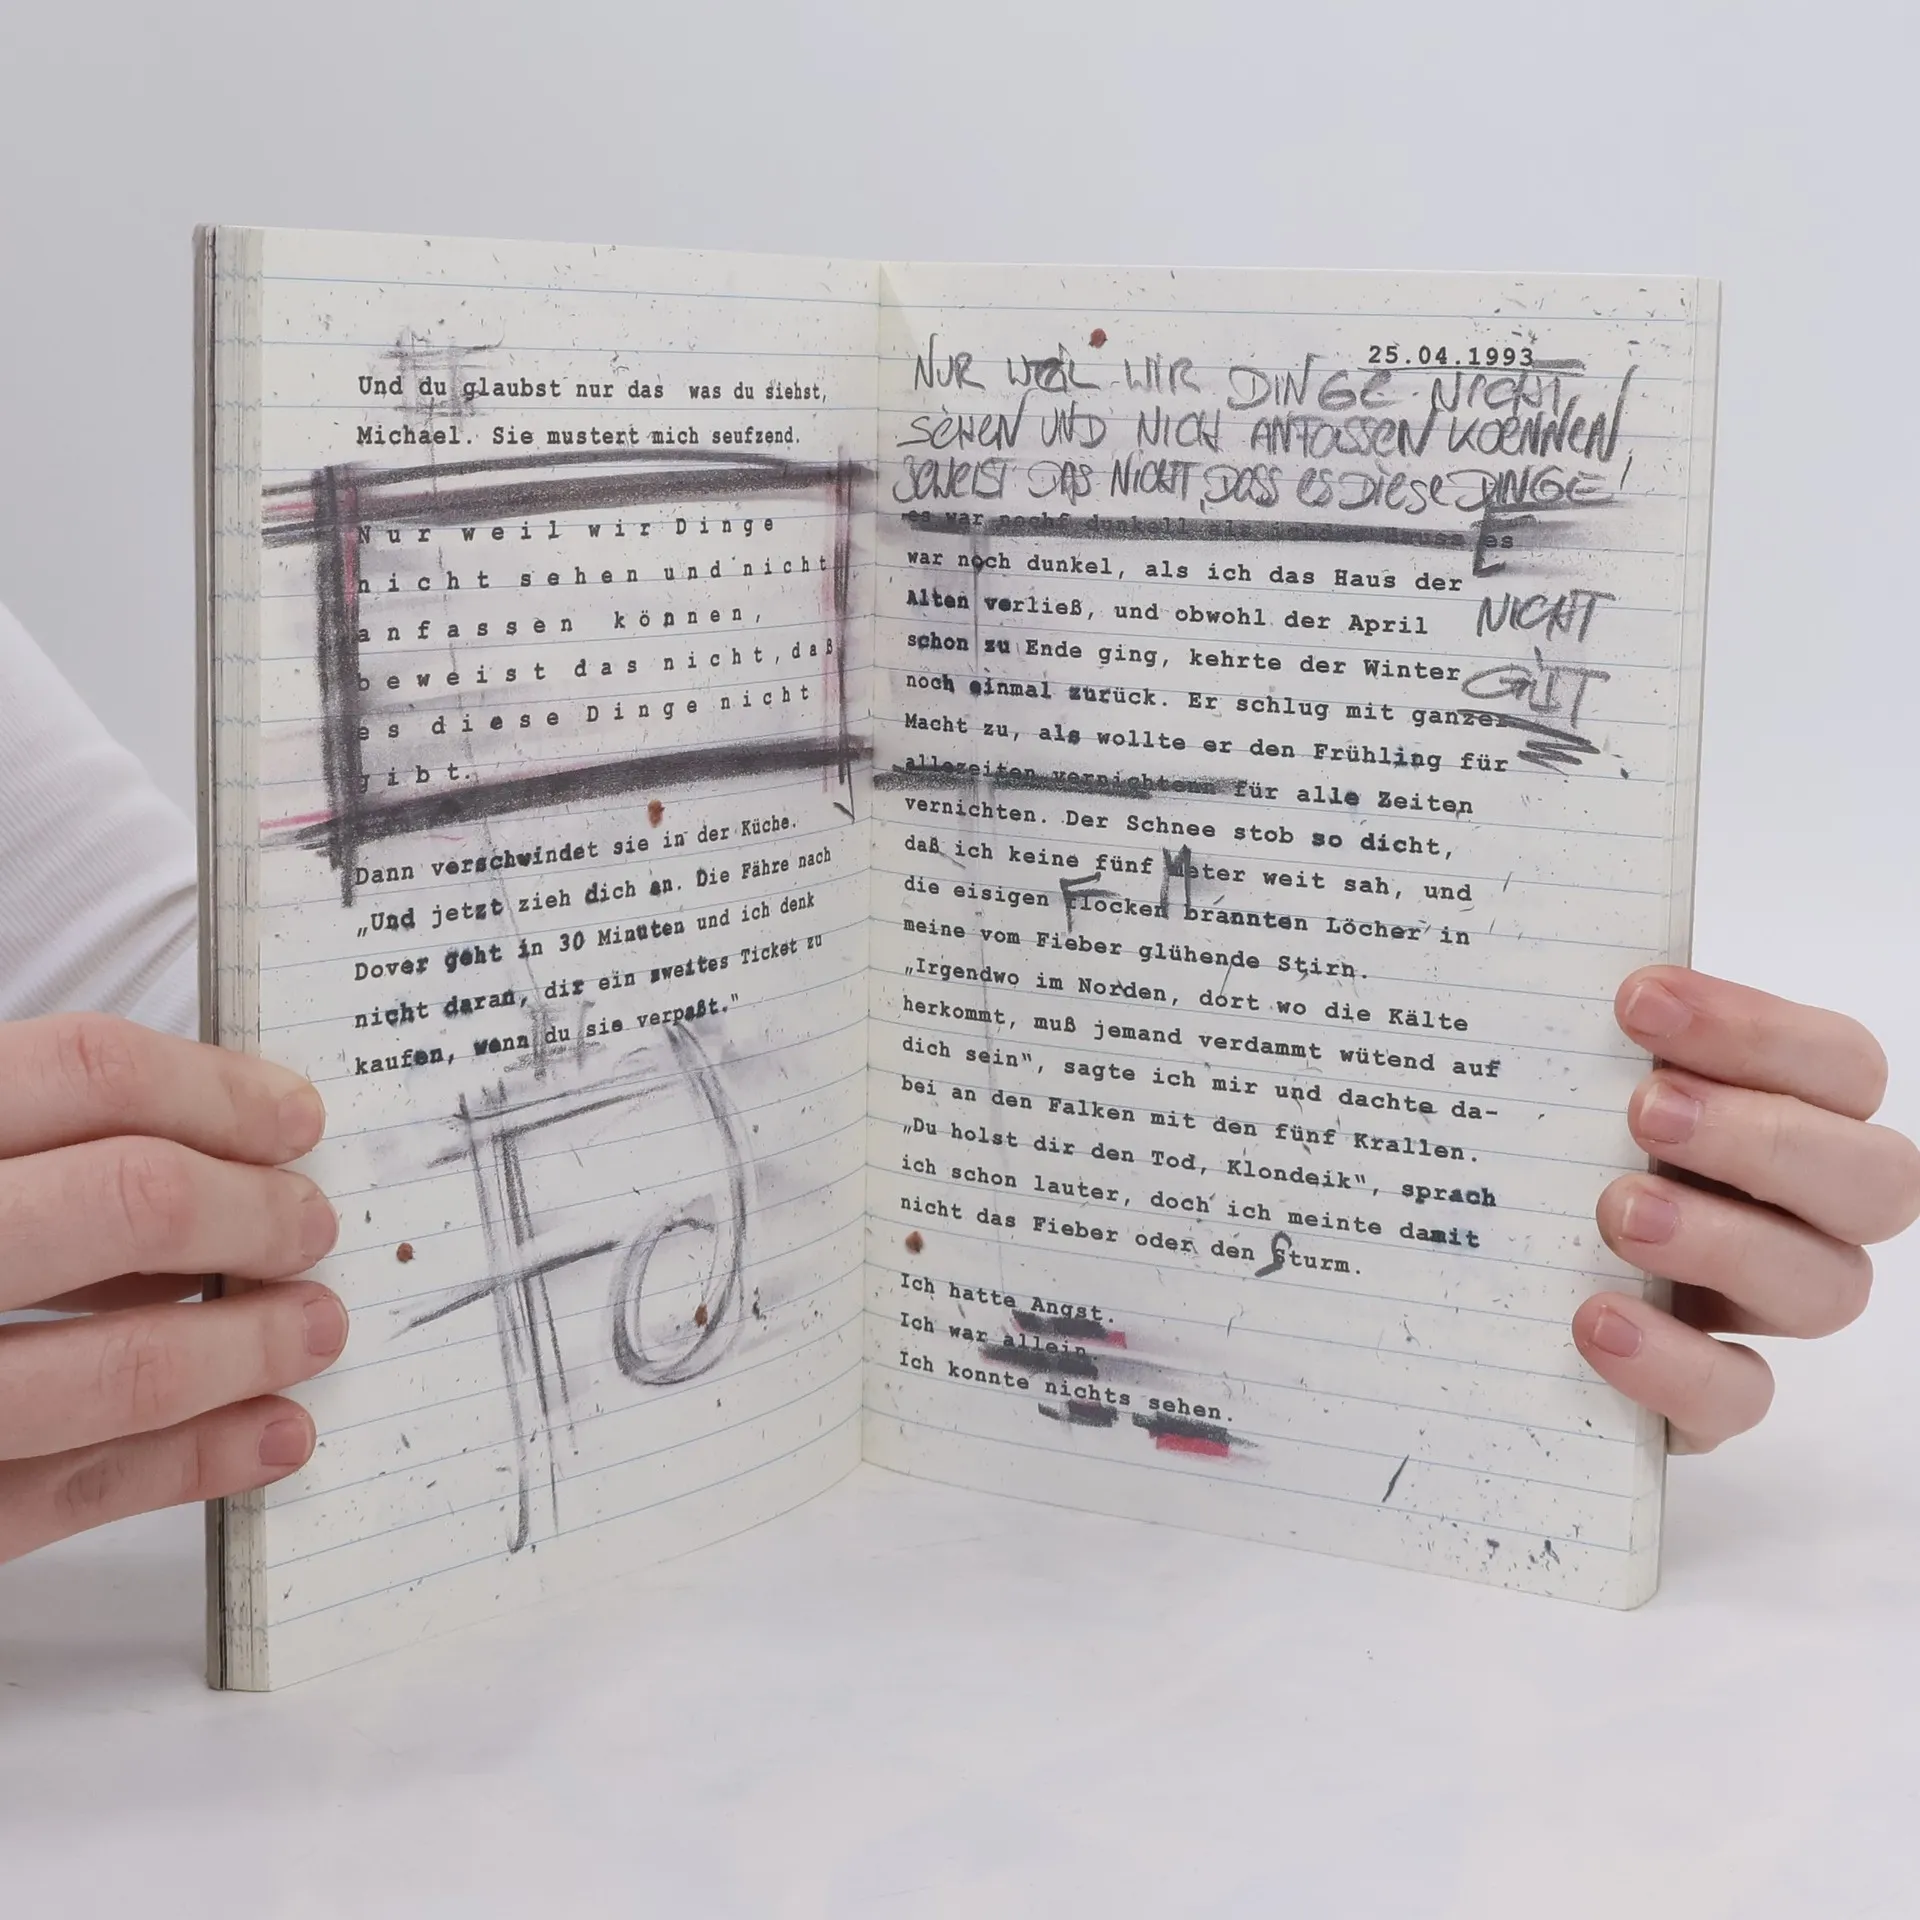 Und du glaubst nur das was du siehst,
Michael. Sie mustert mich seufzend.
Nur weil wir Dinge
nicht sehen und nicht
anfassen können,
beweist das nicht, daß
es diese Dinge nicht
gibt.
Dann verschwindet sie in der Küche.
„Und jetzt zieh dich an. Die Fähre nach
Dover geht in 30 Minuten und ich denk
nicht daran, dir ein zweites Ticket zu
kaufen, wenn du sie verpaßt."
25.04.1993
NUR WEIL WIR DINGE NICHT
SEHEN UND NICH ANFASSEN KOENNEN,
BEWEIST DAS NICHT, DASS ES DIESE DINGE!
NICHT
GIBT
es war nochf dunkell als es
war noch dunkel, als ich das Haus der
Alten verließ, und obwohl der April
schon zu Ende ging, kehrte der Winter
noch einmal zurück. Er schlug mit ganzer
Macht zu, als wollte er den Frühling für
allezeiten vernichtenn für alle Zeiten
vernichten. Der Schnee stob so dicht,
daß ich keine fünf Meter weit sah, und
die eisigen Flocken brannten Löcher in
meine vom Fieber glühende Stirn.
„Irgendwo im Norden, dort wo die Kälte
herkommt, muß jemand verdammt wütend auf
dich sein", sagte ich mir und dachte da-
bei an den Falken mit den fünf Krallen.
„Du holst dir den Tod, Klondeik", sprach
ich schon lauter, doch ich meinte damit
nicht das Fieber oder den Sturm.
Ich hatte Angst.
Ich war allein.
Ich konnte nichts sehen.